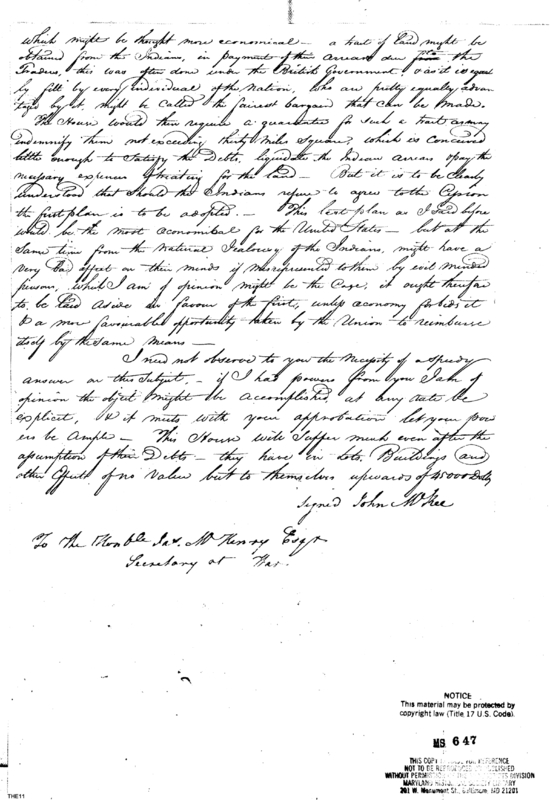 which might be thought more economical — a tract of Land might be
obtained from the Indians, in payment of the Arrears due the
Traders, this was often done under the British Government & as it is equal
ly felt by every individual of the Nation, who are pretty equally advan
taged by it might be called the fairest bargain that can be made.
The House would then require a guarantee for such a tract as may
indemnify them not exceeding thirty Miles Square, which is conceived
little enough to Satisfy the Debts, liquidate the Indian arrears & pay the
necessary expences of treating for the land — But it is to be Clearly
understood that should the Indians refuse to agree to the Cession
the first plan is to be adopted. — This last plan as I said before
would be the most economical for the United States — but at the
Same time from the Natural Jealousy of the Indians, might have a
very bad effect on their minds if misrepresented to them by evil minded
persons, which I am of opinion might be the Case, it ought therefore
to be laid aside in favour of the first, unless economy forbids it
& a more favourable opportunity taken by the Union to reimburse
itself by the same means —
I need not observe to you the Necessity of a speedy
answer on this Subject, — if I had powers from you I am of
opinion the object might be accomplished, at any rate be
explicit, & if it meets with your approbation let your pow
ers be Ample — This House will Suffer much even after the
assumption of their Debts — they have in Lots, Buildings and
other Effects of no Value but to themselves upwards of
signed John McKee
To The Honble Jas. McHenry Esqr
Secretary at War.
NOTICE
This material may be protected by
copyright law (Title 17 U.S. Code).
MS 647
THIS COPY IS MADE FOR REFERENCE
NOT TO BE REPRODUCED OR PUBLISHED
WITHOUT PERMISSION OF THE MANUSCRIPTS DIVISION
MARYLAND HISTORICAL SOCIETY LIBRARY
201 W. Monument St., Baltimore, MD 21201
THE11